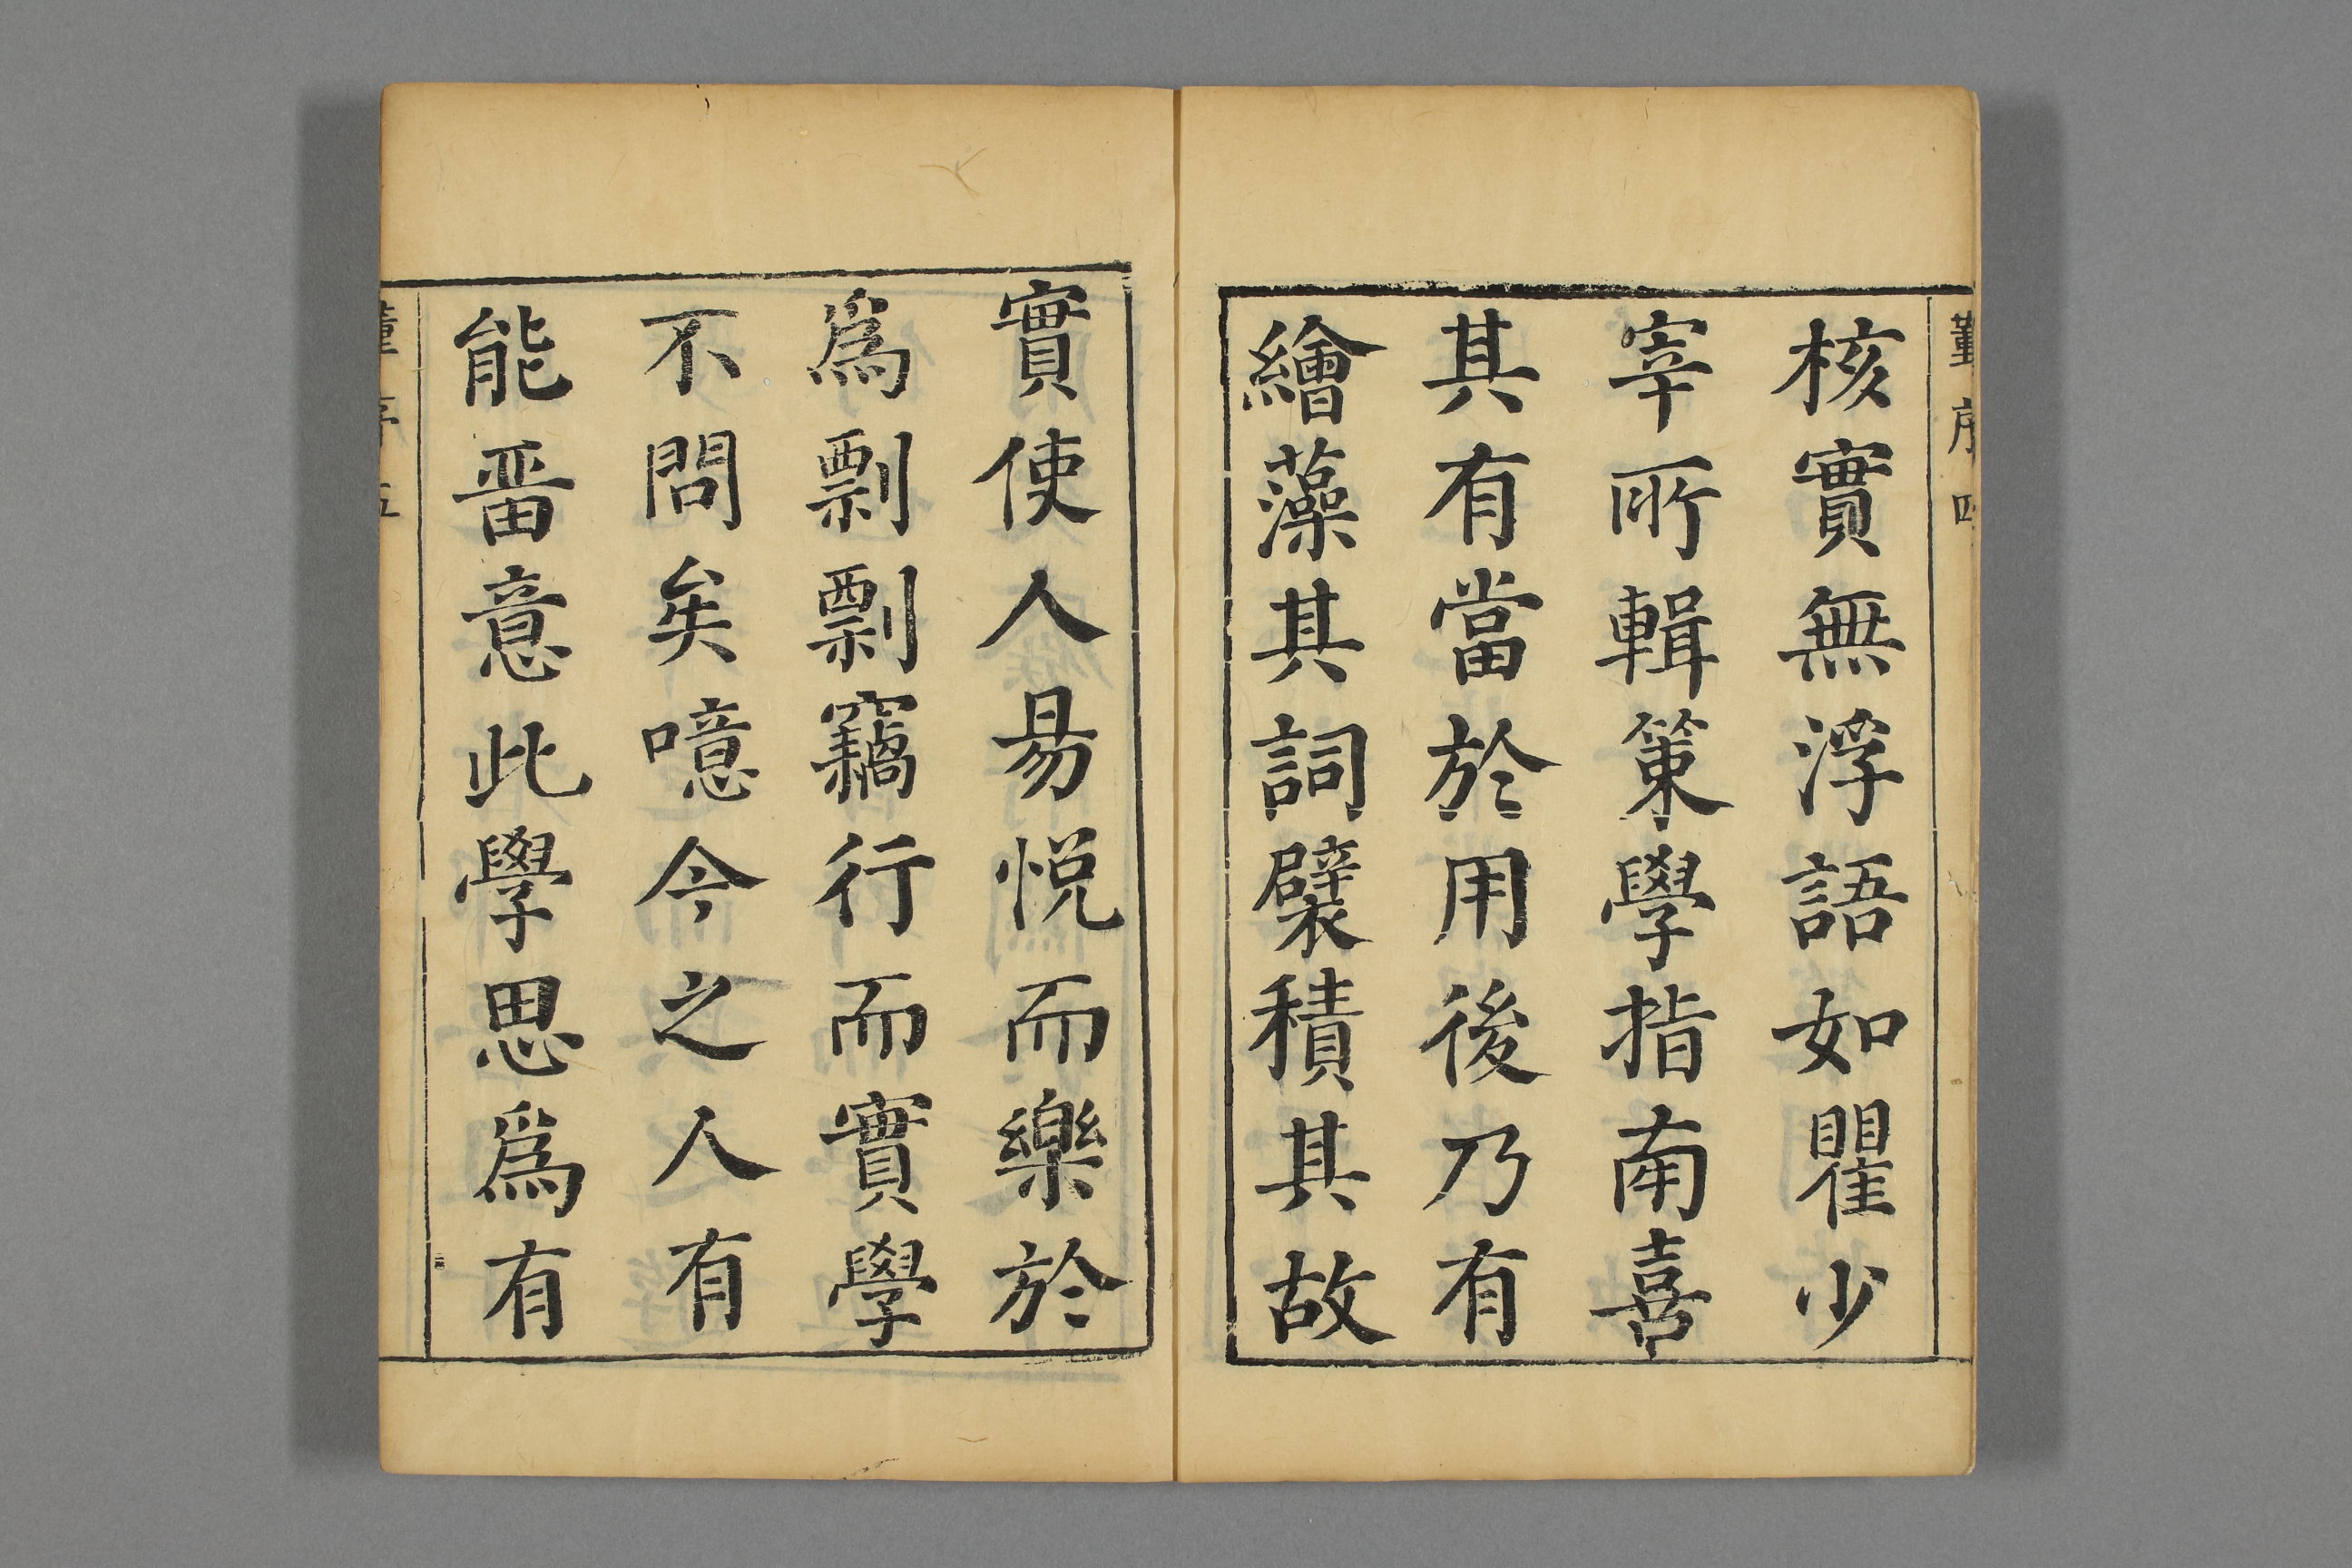 董序 四
核實無浮語如瞿少
宰所輯策學指南喜
其有當於用後乃有
繪藻其詞襞積其故
實使人易悅而樂於
爲剽剽竊行而實學
不問矣噫今之人有
能畱意此學思爲有
董序 五